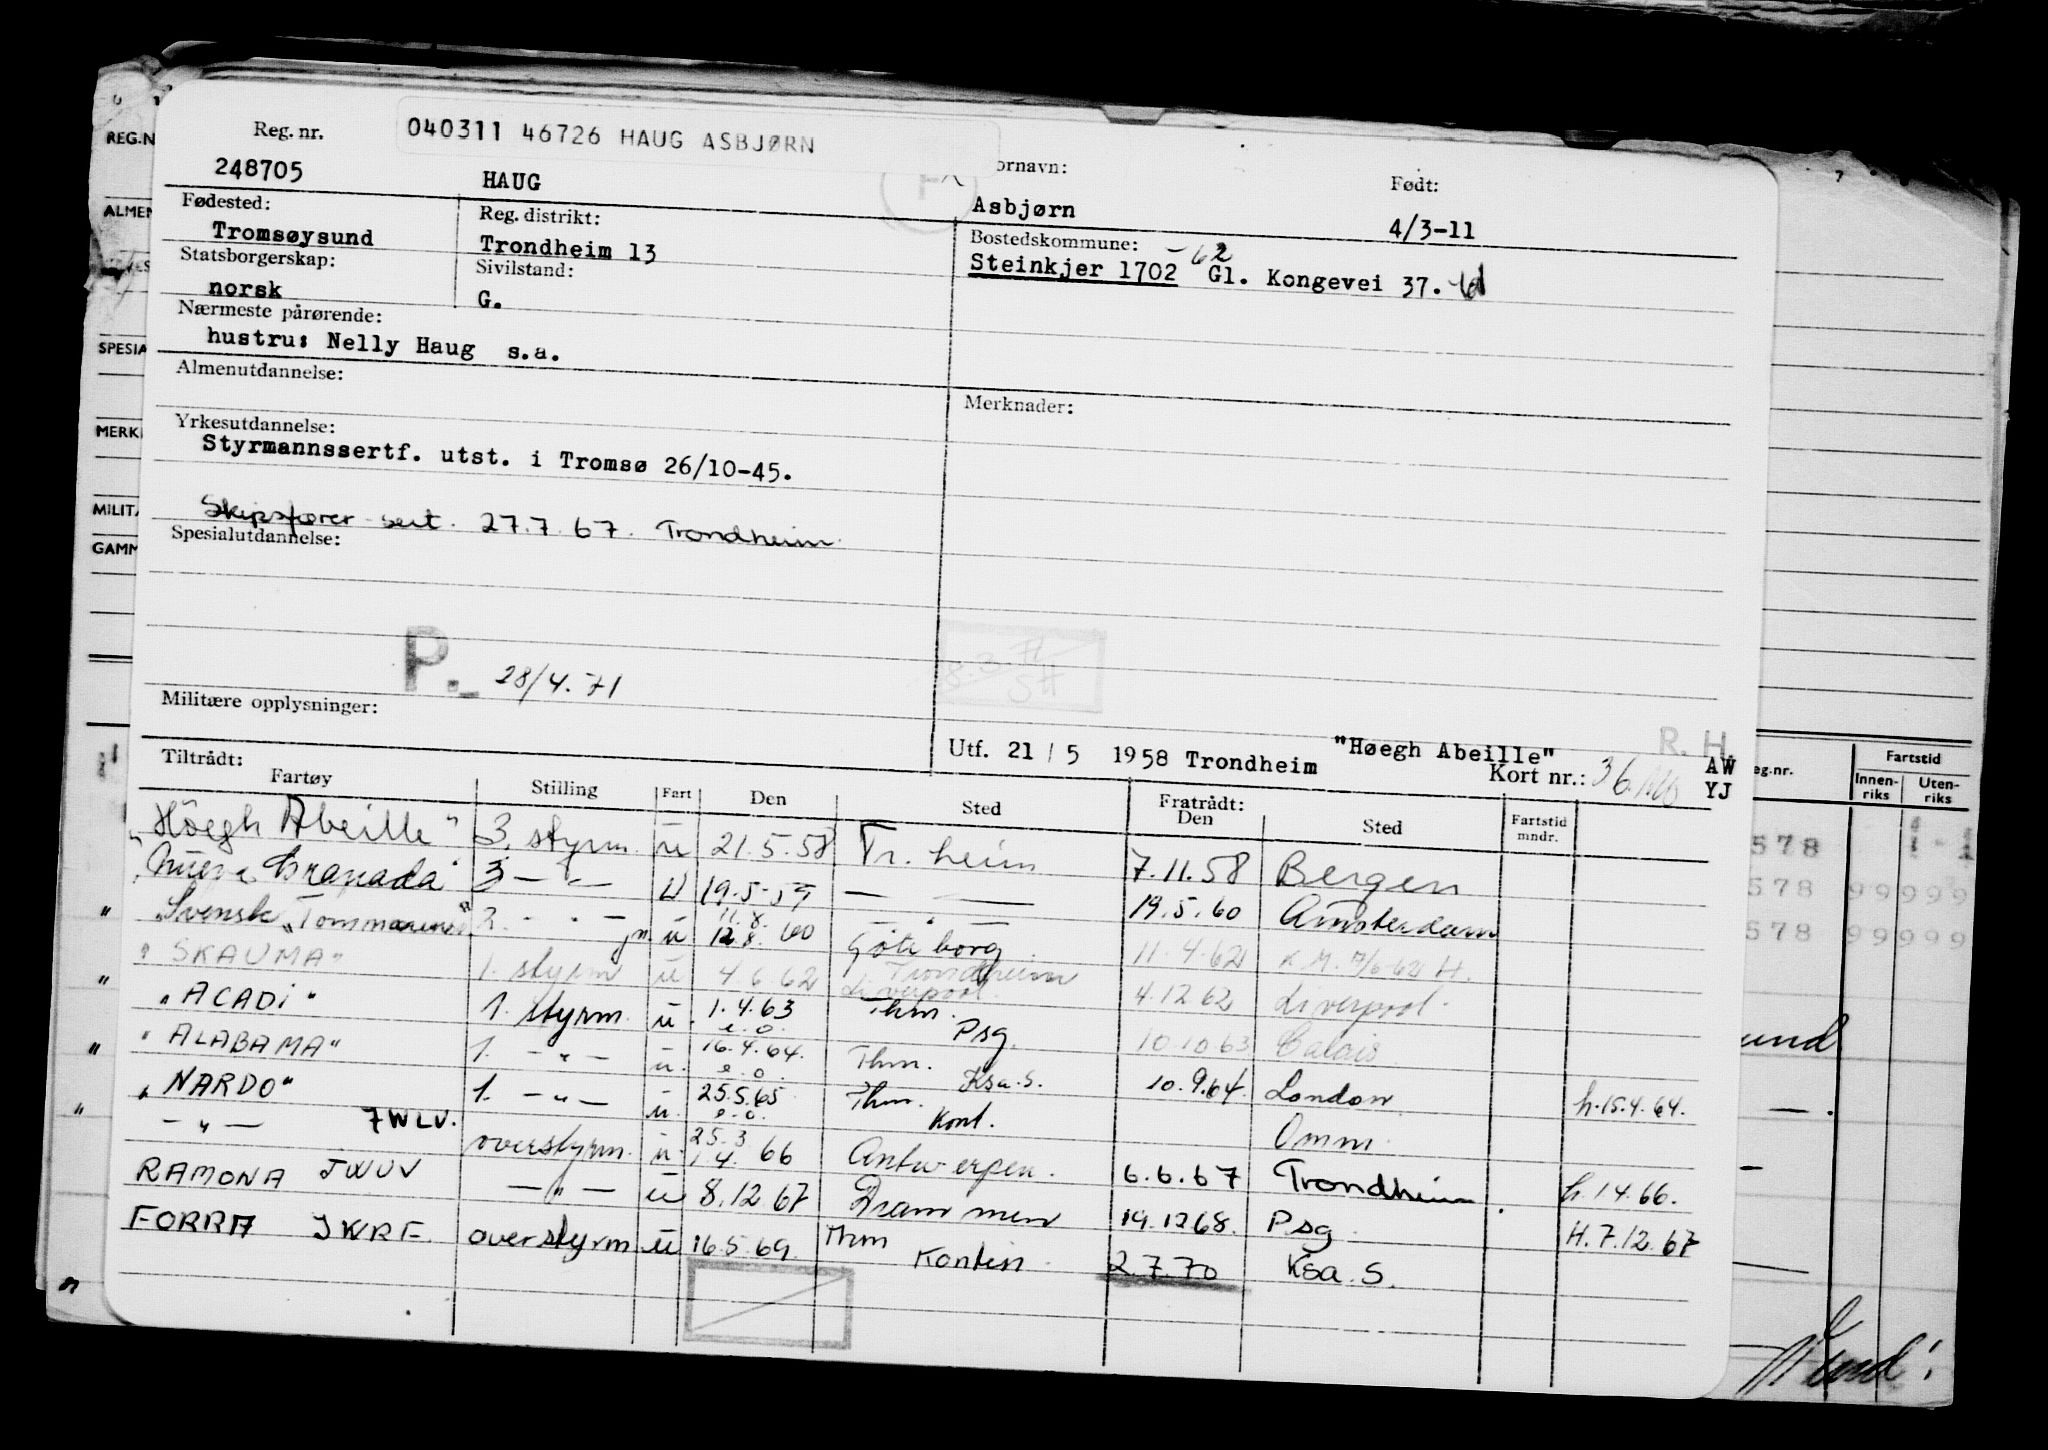 040311 46726 HAUG ASBJØRN
Reg. nr.
248705
HAUG
ornavn:
Asbjørn
Født:
4/3-11
Fødested:
Tromsøysund
Reg. distrikt:
Trondheim 13
Bostedskommune:
-62
Steinkjer 1702 Gl. Kongevei 37.
Statsborgerskap:
norsk
Sivilstand:
G.
Nærmeste pårørende:
hustru: Nelly Haug s.a.
Almenutdannelse:
Merknader:
Yrkesutdannelse:
Styrmannssertf. utst. i Tromsø 26/10-45.
Skipsfører sert. 27.7.67. Trondheim.
Spesialutdannelse:
P. 28/4.71
8.3.71
SH
Militære opplysninger:
R. H.
Utf. 21 / 5 1958 Trondheim "Høegh Abeille"
Kort nr.: 36
AW
YJ
Tiltrådt:
Fartøy Stilling Fart Den Sted Fratrådt: Den Sted Fartstid mndr.
"Höegh Abeille" 3. styrm. u 21.5.58 Tr. heim 7.11.58 Bergen
"Nueva Granada" 3 — " — U 19.5.59 — " — 19.5.60 Amsterdam
Svensk "Tommarine" 2. - " - u 11.8. 12.8. 60 Göteborg 11.4.62
"SKAUMA" 1. styrm u 4.6.62 Trondheim Liverpool. 4.12.62 Liverpool.
"ACADI" 1. styrm. u. 1.4.63 e.o. Thm. Psg. 10.10.63 Calais
"ALABAMA" 1. — " — u. 16.4.64. e.o. Thm. Ksa.S. 10.9.64. London h.15.4.64.
"NARDO" 1. — " — u. 25.5.65 e.o. Thm. Kont. Omm.
— " — 7WLV. overstyrm. u. 25.3 1.4. 66 Antwerpen. 6.6.67 Trondheim. h.1.4.66.
RAMONA JWUV — " — u 8.12.67 Drammen 19.12.68. Psg. H.7.12.67
FORRA JWRF. overstyrm u 16.5.69. Thm Kontin. 2.7.70 Ksa.S.
REG.N
ALMEN
SPESIA
MERK
MILIT
GAMM
eg.nr.
Fartstid
Innen-
riks
Uten-
riks
578
578 99999
578 99999
und